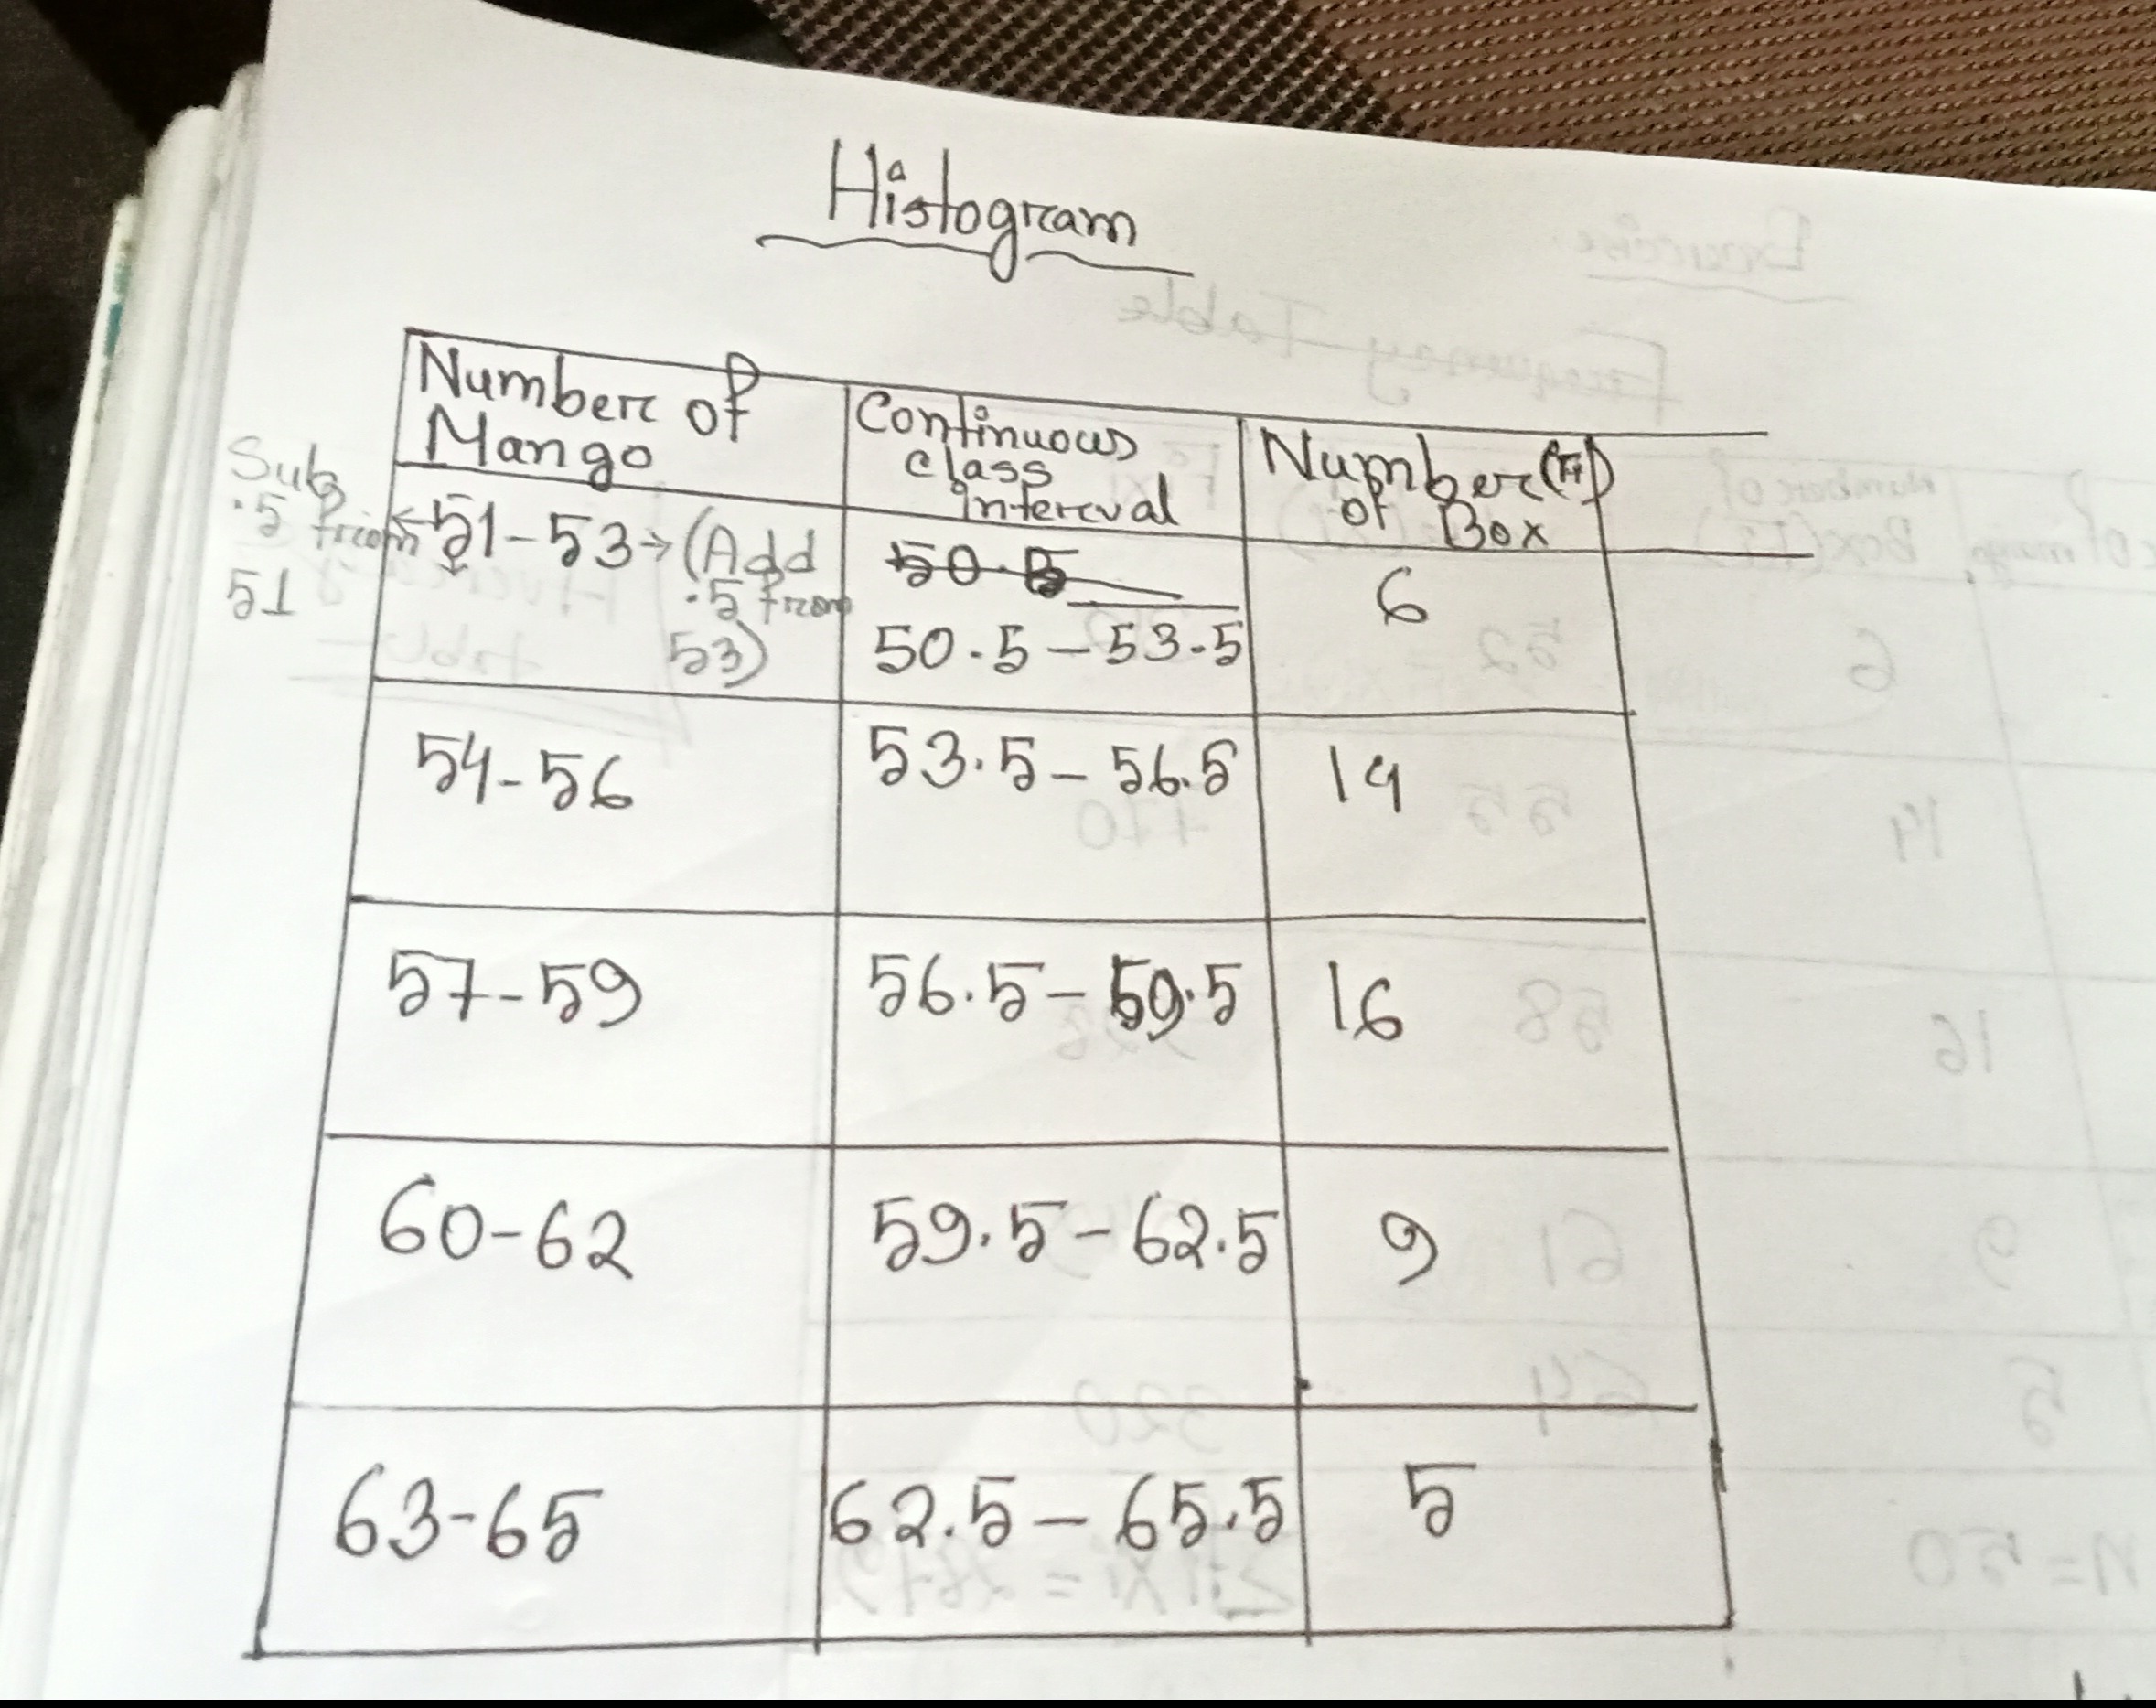 Histogram
Number of
Mango
Continuous
class
interval
Number (Fi)
of Box
Sub
.5 from
51
51-53 → (Add
.5 from
53)
50.5
50.5 - 53.5
6
54-56
53.5 - 56.5
14
57-59
56.5 - 59.5
16
60-62
59.5 - 62.5
9
63-65
62.5 - 65.5
5